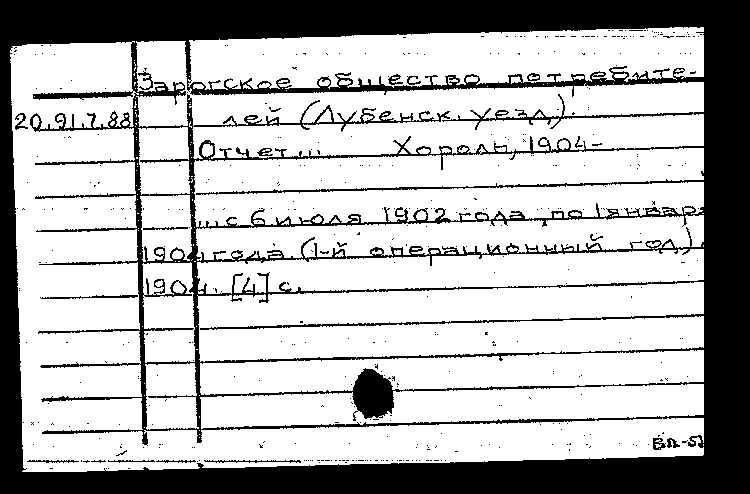 Зарогское общество потребите-
20.91.7.88 лей (Лубенск. уезд).
Отчет... Хороль, 1904-
...с 6 июля 1902 года по 1 январ
1904 года. (1-й операционный год).
1904. [4] с.